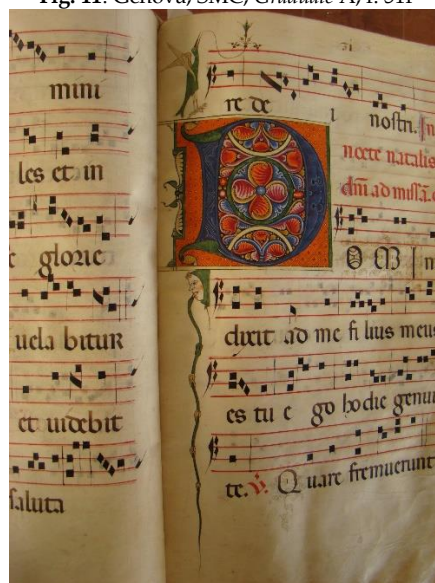 Fig. 11. Genova, SMC, Graduale A, f. 31r
mini
les et in
glorie
uela bitur
et uidebit
saluta
re de i nostri. In
nocte natalis
dñi ad missã.
D O M In
dixit ad me fi lius meus
es tu e go hodie genui
te. V. Quare fremuerunt